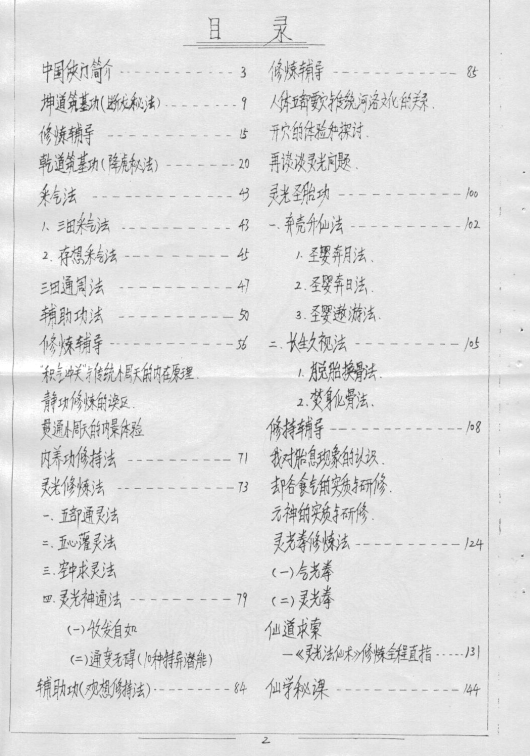 目 录
中国仙门简介 ---------- 3
坤道筑基功(断龙秘法) ---------- 9
修炼辅导 ---------- 15
乾道筑基功(降虎秘法) ---------- 20
采气法 ---------- 43
1. 三田采气法 ---------- 43
2. 存想采气法 ---------- 45
三田通周法 ---------- 47
辅助功法 ---------- 50
修炼辅导 ---------- 56
"积气冲关"与传统小周天的内在原理.
静功修炼的误区.
贯通小周天的内景体验
内养功修持法 ---------- 71
灵光修炼法 ---------- 73
一. 五部通灵法
二. 五心灌灵法
三. 空中求灵法
四. 灵光神通法 ---------- 79
(一) 收发自如
(二) 通变无碍(10种特异潜能)
辅助功(观想修持法) ---------- 84
修炼辅导 ---------- 85
人体五部要穴与传统河洛文化的关系.
开穴的体验和探讨.
再谈谈灵光问题.
灵光圣胎功 ---------- 100
一. 弃壳升仙法 ---------- 102
1. 圣婴奔月法.
2. 圣婴奔日法.
3. 圣婴遨游法.
二. 长生久视法 ---------- 105
1. 脱胎换骨法.
2. 焚身化骨法.
修持辅导 ---------- 108
我对胎息现象的认识.
却谷食气的实质与研修.
元神的实质与研修.
灵光拳修炼法 ---------- 124
(一) 气光拳
(二) 灵光拳
仙道求索
—《灵光法仙术》修炼全程直指 ----- 131
仙学秘课 ---------- 144
2